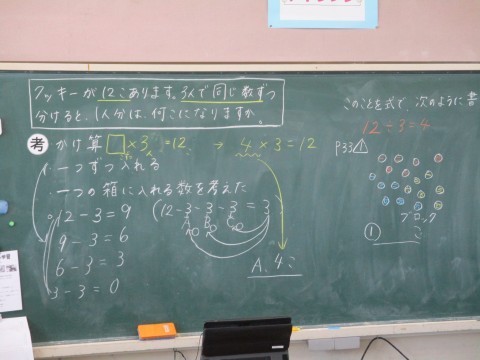 クッキーが12こあります。3人で同じ数ずつ
分けると、1人分は、何こになりますか。
考 かけ算 □×3=12 → 4×3=12
・一つずつ入れる
・一つの箱に入れる数を考えた
12-3=9
9-3=6
6-3=3
3-3=0
(12-3-3-3=3)
A. 4こ
このことを式で、次のように書
12÷3=4
P33
ブロック
①
こ